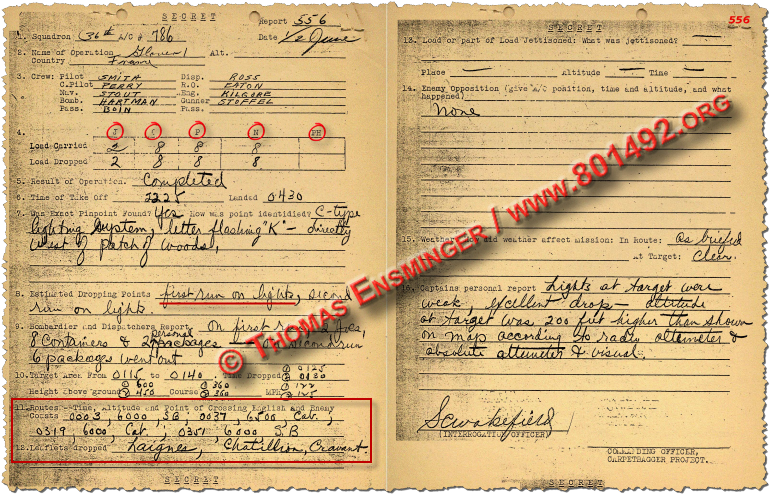 SECRET
Report 556
1. Squadron 36th A/C # 786 Date
2. Name of Operation Glover 1 Alt.
Country France
3. Crew: Pilot SMITH Disp. ROSS
C.Pilot PERRY R.O. EATON
Nav. STOUT Eng. KILGORE
Bomb. HARTMAN Gunner STOFFEL
Pass. BOIN Pass.
4. J C P N PH
Load Carried 2 8 8 8
Load Dropped 2 8 8 8
5. Result of Operation. Completed
6. Time of Take Off 2225 Landed 0430
7. Was Exact Pinpoint Found? Yes How was point identidied? C-type
lighting system, letter flashing "K" - directly
west of patch of woods.
8. Estimated Dropping Points first run on lights, second
run on lights.
9. Bombardier and Dispatchers Report on first run
8 containers & 2 packages personal - on second run
6 packages went out
10. Target Area From 0115 to 0140. Time Dropped ① 0125
② 0130
Height above ground ① 600 ② 450 Course ① 360 ② 360 MPH ① 122 ② 125
11. Routes - Time, Altitude and Point of Crossing English and Enemy
Coasts 0003, 6000, S.B., 0037, 6500, Cab.,
0319, 6000, Cab., 0351, 6000 S.B
12. Leaflets dropped Laignes, Chatillion, Cravant
SECRET
SECRET
556
13. Load or part of Load Jettisoned: What was jettisoned?
Place Altitude Time
14. Enemy Opposition (give A/C position, time and altitude, and what
happened)
None
15. Weather: How did weather affect mission: In Route: as briefed
at Target: Clear.
16. Captains personal report Lights at target were
weak, excellent drop - altitude
at target was 200 feet higher than shown
on map according to radio altometer &
absolute altimeter & visual.
SCWakefield
(INTERROGATION OFFICER)
COMMANDING OFFICER,
CARPETBAGGER PROJECT.
SECRET
© Thomas Ensminger / www.801492.org